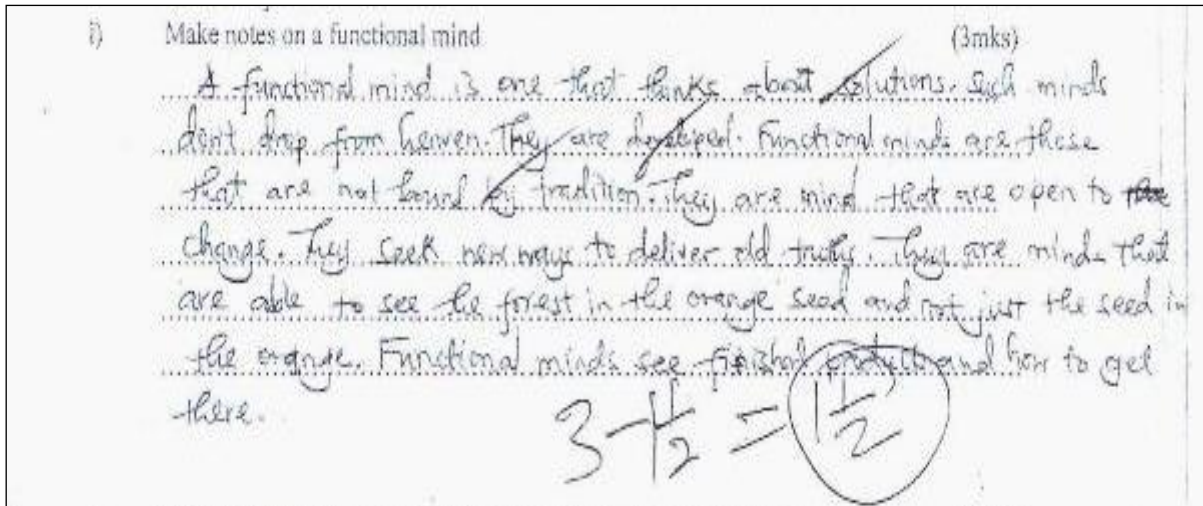 i) Make notes on a functional mind (3mks)
A functional mind is one that thinks about solutions. Such minds
don't drop from heaven. They are developed. Functional minds are those
that are not bound by tradition. They are mind that are open to
change. They seek new ways to deliver old truths. They are minds that
are able to see the forest in the orange seed and not just the seed in
the orange. Functional minds see finished products and how to get
there.
3 - 1 1/2 = 1 1/2